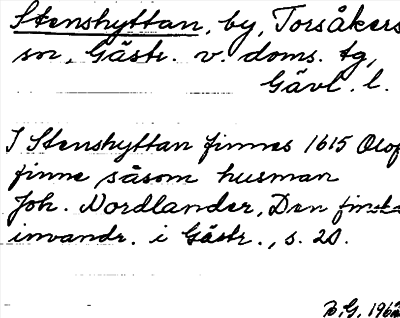 Stenshyttan, by, Torsåkers
sn, Gästr. v. doms. tg,
Gävl. l.
I Stenshyttan finnes 1615 Olof
finne såsom husman
Joh. Nordlander, Den finska
invandr. i Gästr., s. 20.
B.G. 196